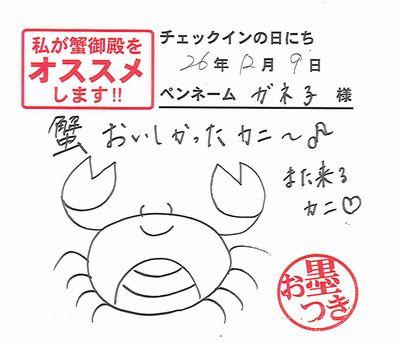 私が蟹御殿を
オススメ
します!!
チェックインの日にち
26年12月9日
ペンネーム ガネ子 様
蟹 おいしかったカニ〜♪
また来る
カニ♡
お墨
つき